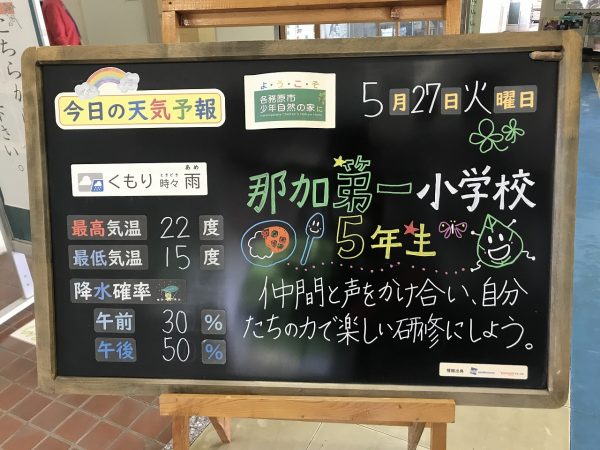 こちらか
さい。
今日の天気予報
よ・う・こ・そ
各務原市
少年自然の家に
5月27日火曜日
くもり ときどき時々 あめ雨
最高気温 22 度
最低気温 15 度
降水確率
午前 30 %
午後 50 %
那加第一小学校
5年生
仲間と声をかけ合い、自分
たちの力で楽しい研修にしよう。
情報出典